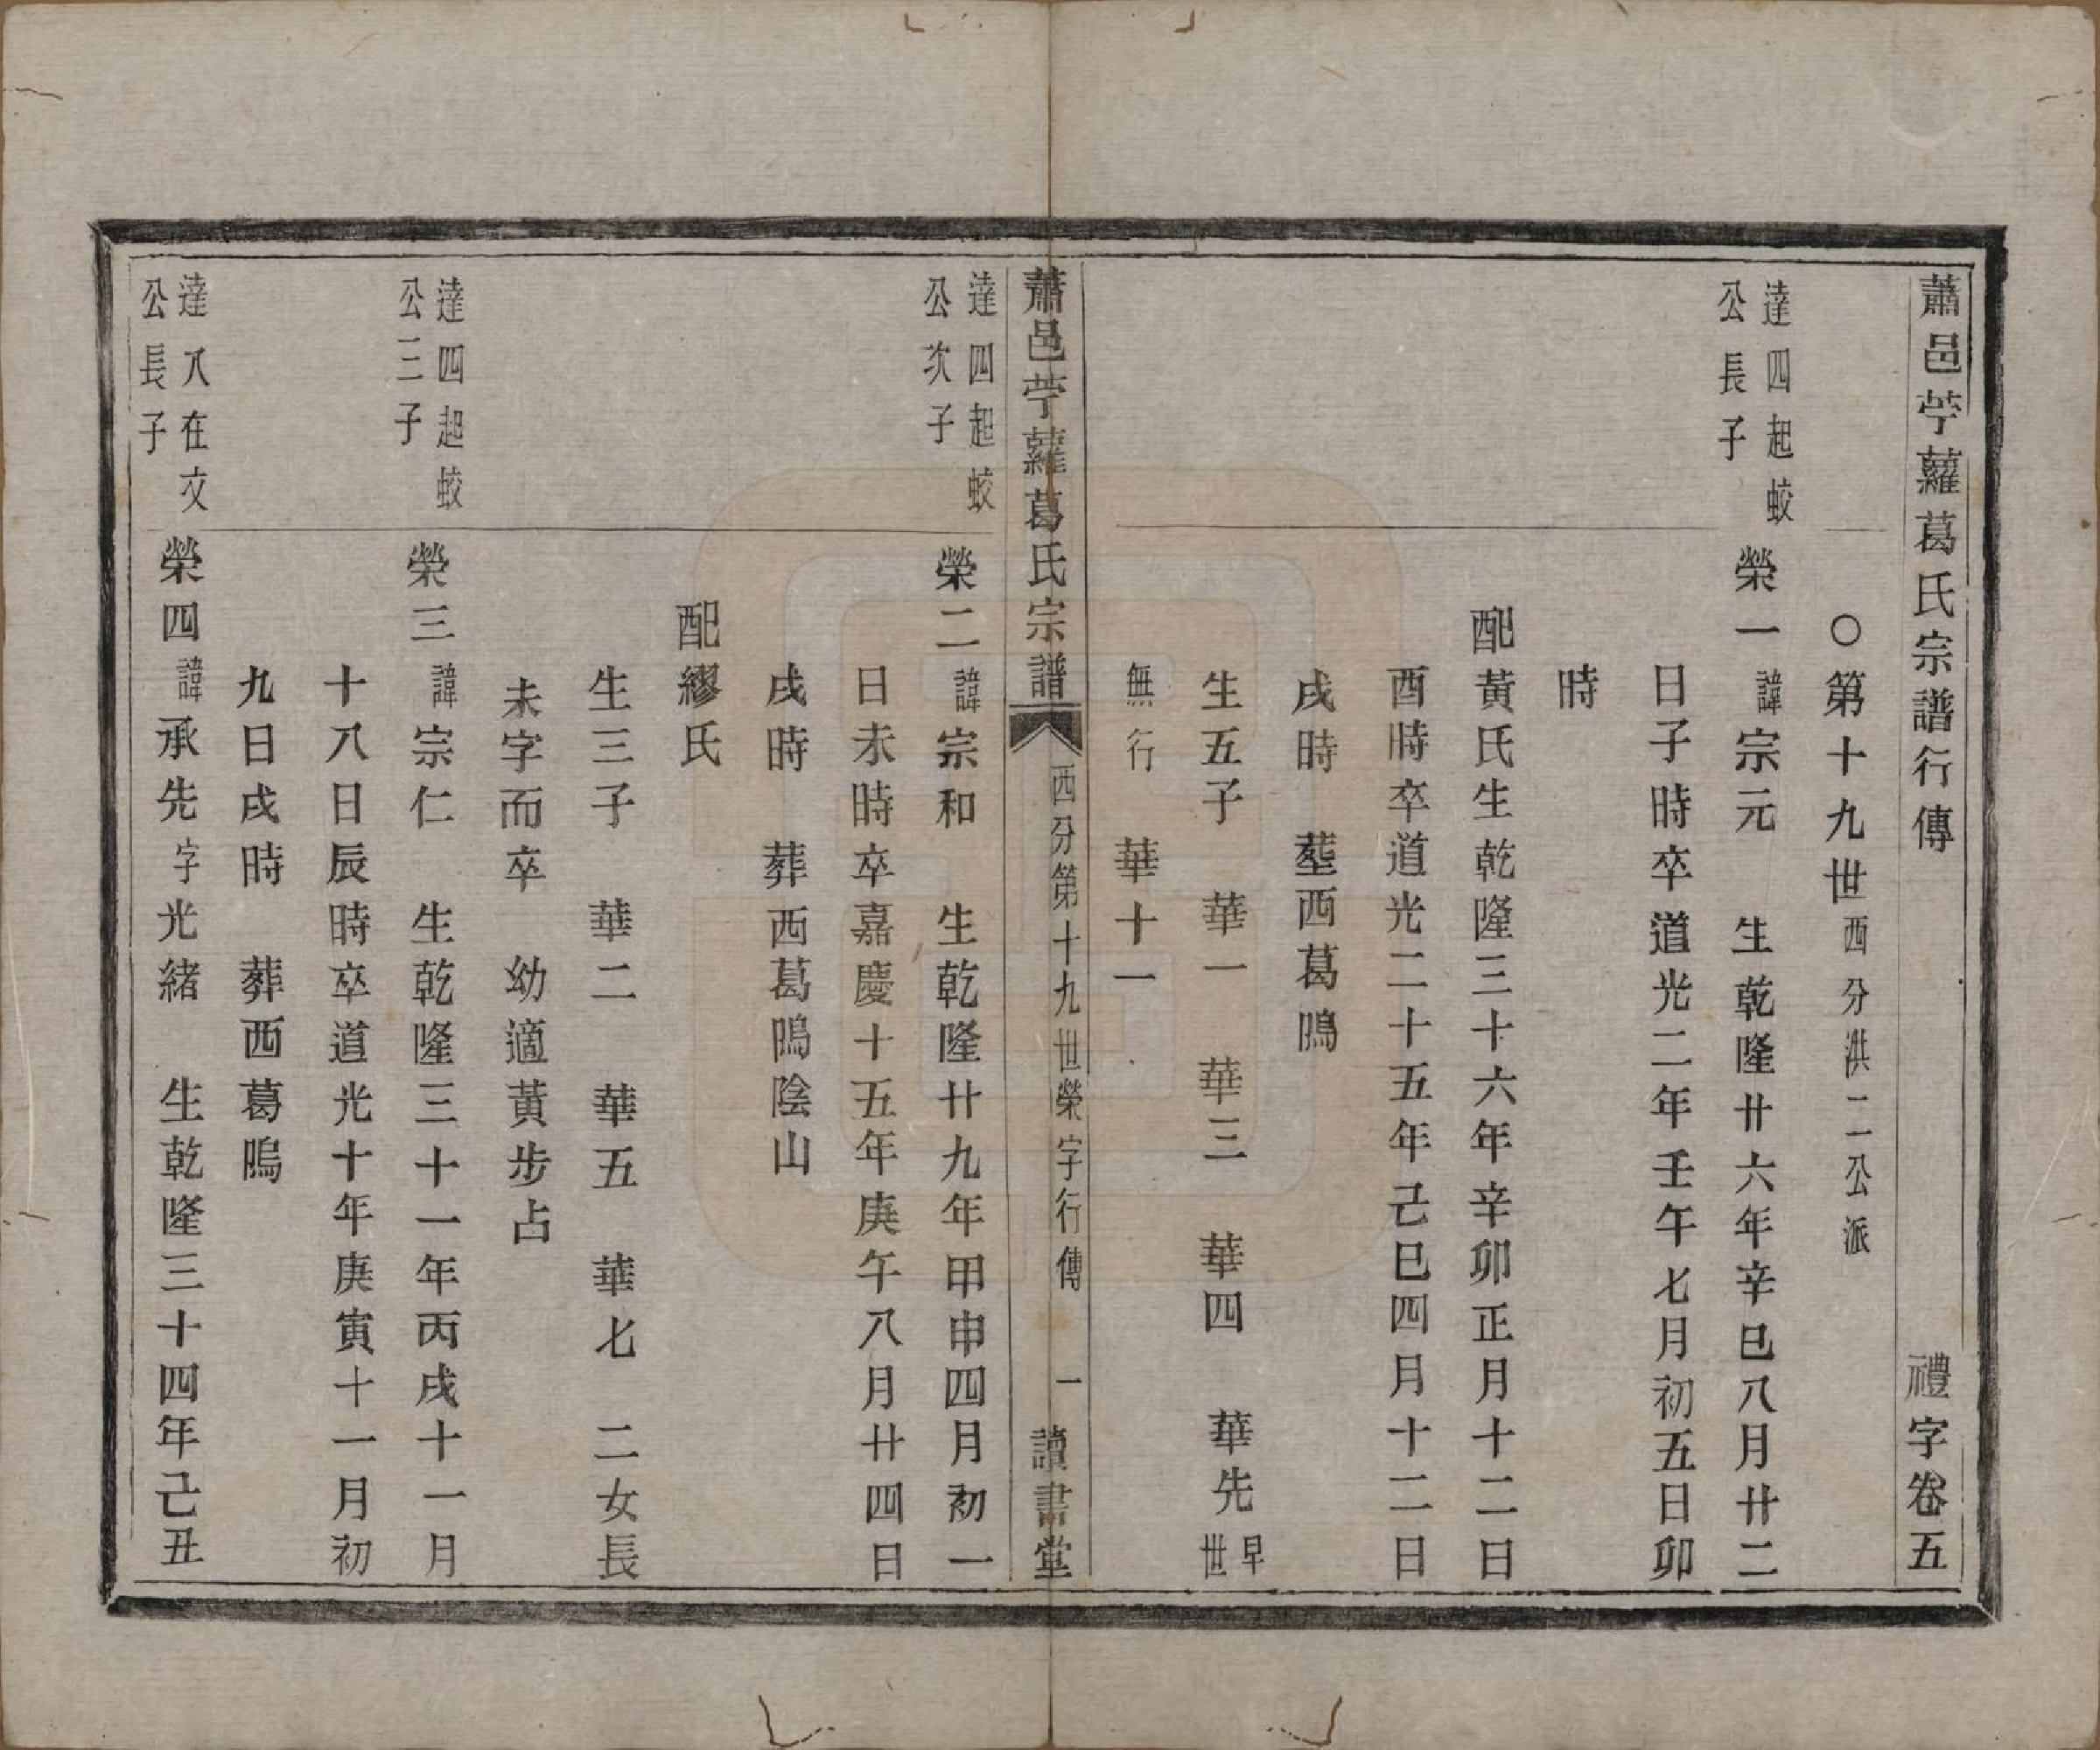 蕭邑苧蘿葛氏宗譜行傳　禮字卷五
○第十九世西分洪二公派
達四起蛟
公長子
榮一諱宗元　生乾隆廿六年辛巳八月廿二
日子時卒道光二年壬午七月初五日卯
時
配黃氏生乾隆三十六年辛卯正月十二日
酉時卒道光二十五年己巳四月十二日
戌時　塟西葛隝
生五子　華一　華三　華四　華先早世
無行　華十一
蕭邑苧蘿葛氏宗譜　西分第十九世榮字行傳　一　讀書堂
達四起蛟
公次子
榮二諱宗和　生乾隆廿九年甲申四月初一
日未時卒嘉慶十五年庚午八月廿四日
戌時　葬西葛隝陰山
配繆氏
生三子　華二　華五　華七　二女長
未字而卒　幼適黃步占
達四起蛟
公三子
榮三諱宗仁　生乾隆三十一年丙戌十一月
十八日辰時卒道光十年庚寅十一月初
九日戌時　葬西葛隝
達八在文
公長子
榮四諱承先字光緒　生乾隆三十四年己丑